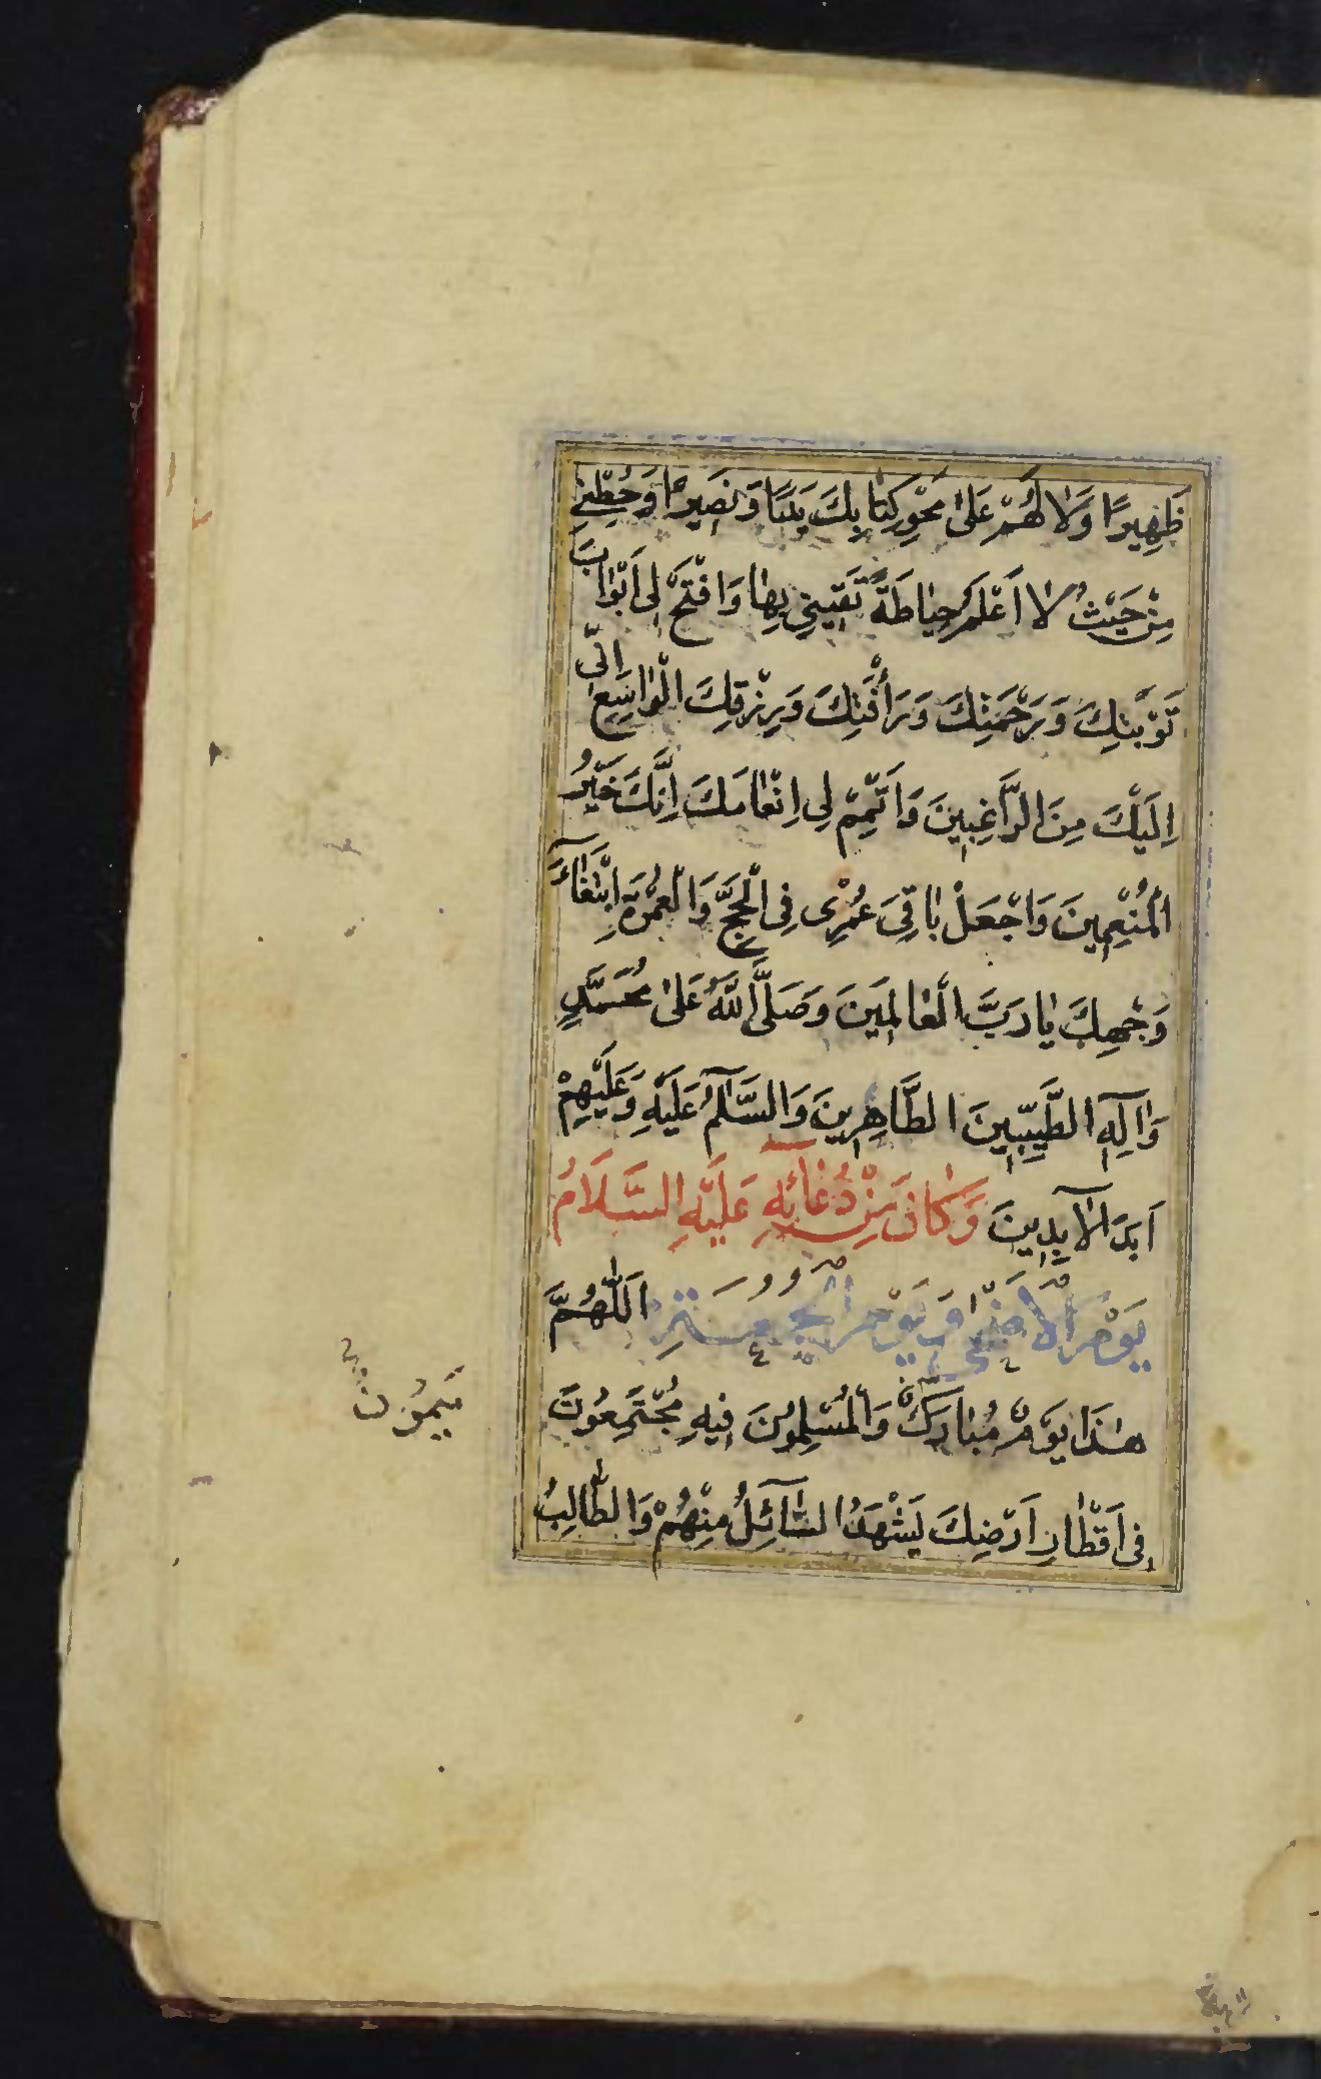 ظَهِيرًا وَلَا لَهُمْ عَلَىٰ مَحْوِ كِتَابِكَ يَدًا وَنَصِيرًا وَحُطْنِي
مِنْ حَيْثُ لَا أَعْلَمُ حِيَاطَةً تَقِينِي بِهَا وَافْتَحْ لِي أَبْوَابَ
تَوْبَتِكَ وَرَحْمَتِكَ وَرَأْفَتِكَ وَرِزْقِكَ الْوَاسِعِ إِنِّي
إِلَيْكَ مِنَ الرَّاغِبِينَ وَأَتْمِمْ لِي إِنْعَامَكَ إِنَّكَ خَيْرُ
الْمُنْعِمِينَ وَاجْعَلْ بَاقِيَ عُمْرِي فِي الْحَجِّ وَالْعُمْرَةِ ابْتِغَاءَ
وَجْهِكَ يَا رَبَّ الْعَالَمِينَ وَصَلَّى اللَّهُ عَلَىٰ مُحَمَّدٍ
وَآلِهِ الطَّيِّبِينَ الطَّاهِرِينَ وَالسَّلَامُ عَلَيْهِ وَعَلَيْهِمْ
أَبَدَ الْآبِدِينَ وَكَانَ مِنْ دُعَائِهِ عَلَيْهِ السَّلَامُ
يَوْمَ الْأَضْحَىٰ وَيَوْمَ الْجُمُعَةِ اللَّهُمَّ
هٰذَا يَوْمٌ مُبَارَكٌ وَالْمُسْلِمُونَ فِيهِ مُجْتَمِعُونَ
مَيْمُونٌ
فِي أَقْطَارِ أَرْضِكَ يَشْهَدُ السَّائِلُ مِنْهُمْ وَالطَّالِبُ